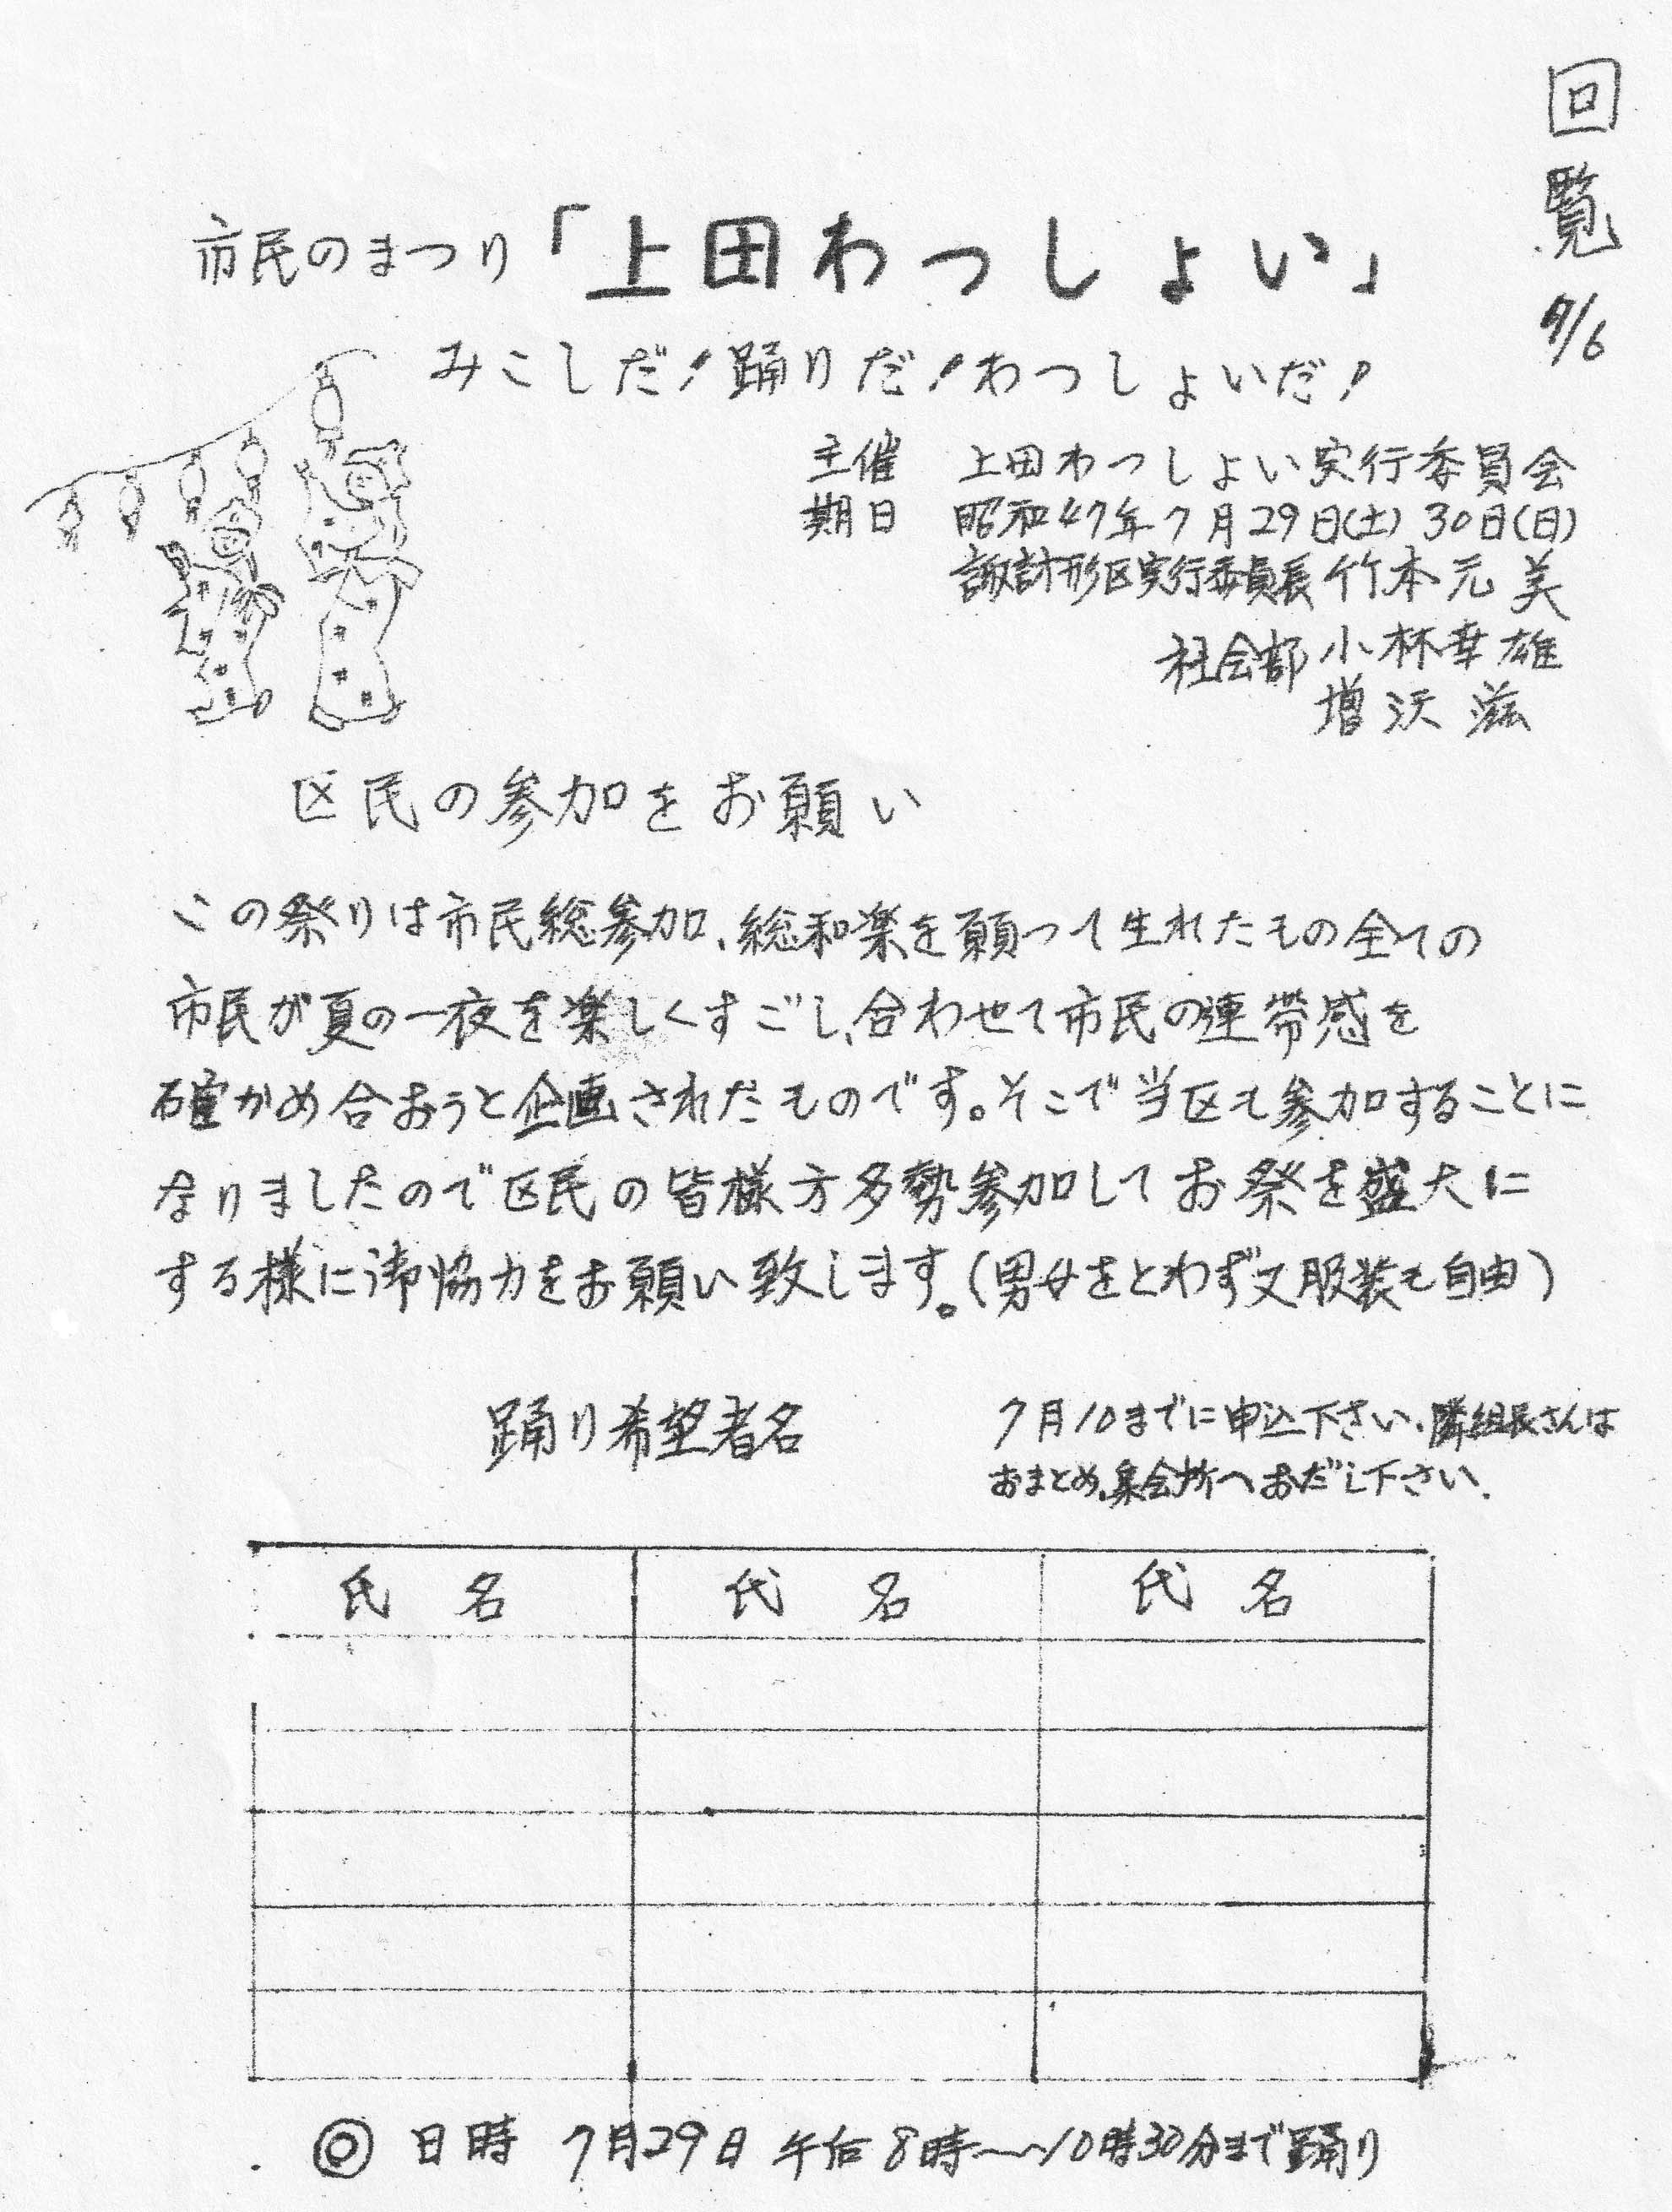 回覧 7/6
市民のまつり「上田わっしょい」
みこしだ!踊りだ!わっしょいだ!
主催 上田わっしょい実行委員会
期日 昭和47年7月29日(土) 30日(日)
諏訪形区実行委員長 竹本元美
社会部 小林幸雄
増沢 滋
区民の参加をお願い
この祭りは市民総参加、総和楽を願って生れたもの全ての
市民が夏の一夜を楽しくすごし、合わせて市民の連帯感を
確かめ合おうと企画されたものです。そこで当区も参加することに
なりましたので区民の皆様方多勢参加してお祭を盛大に
する様に御協力をお願い致します。(男女をとわず又服装も自由)
踊り希望者名
7月10までに申込下さい、隣組長さんは
おまとめ、集会所へおだし下さい.
氏 名 氏 名 氏 名
◎ 日時 7月29日 午后8時〜10時30分まで踊り